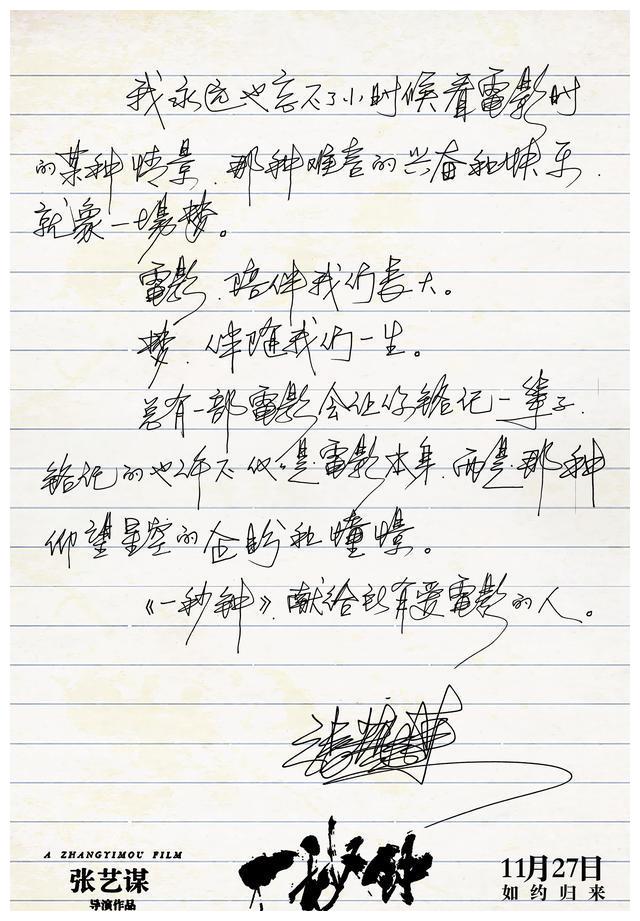 我永远也忘不了小时候看電影时
的某种情景，那种难言的兴奋和快乐，
就象一場梦。
電影，陪伴我们长大。
梦，伴随我们一生。
总有一部電影会让你铭记一辈子，
铭记的也许不仅仅是電影本身，而是那种
仰望星空的企盼和憧憬。
《一秒钟》，献给所有爱電影的人。
A ZHANGYIMOU FILM
张艺谋
导演作品
一秒钟
11月27日
如约归来